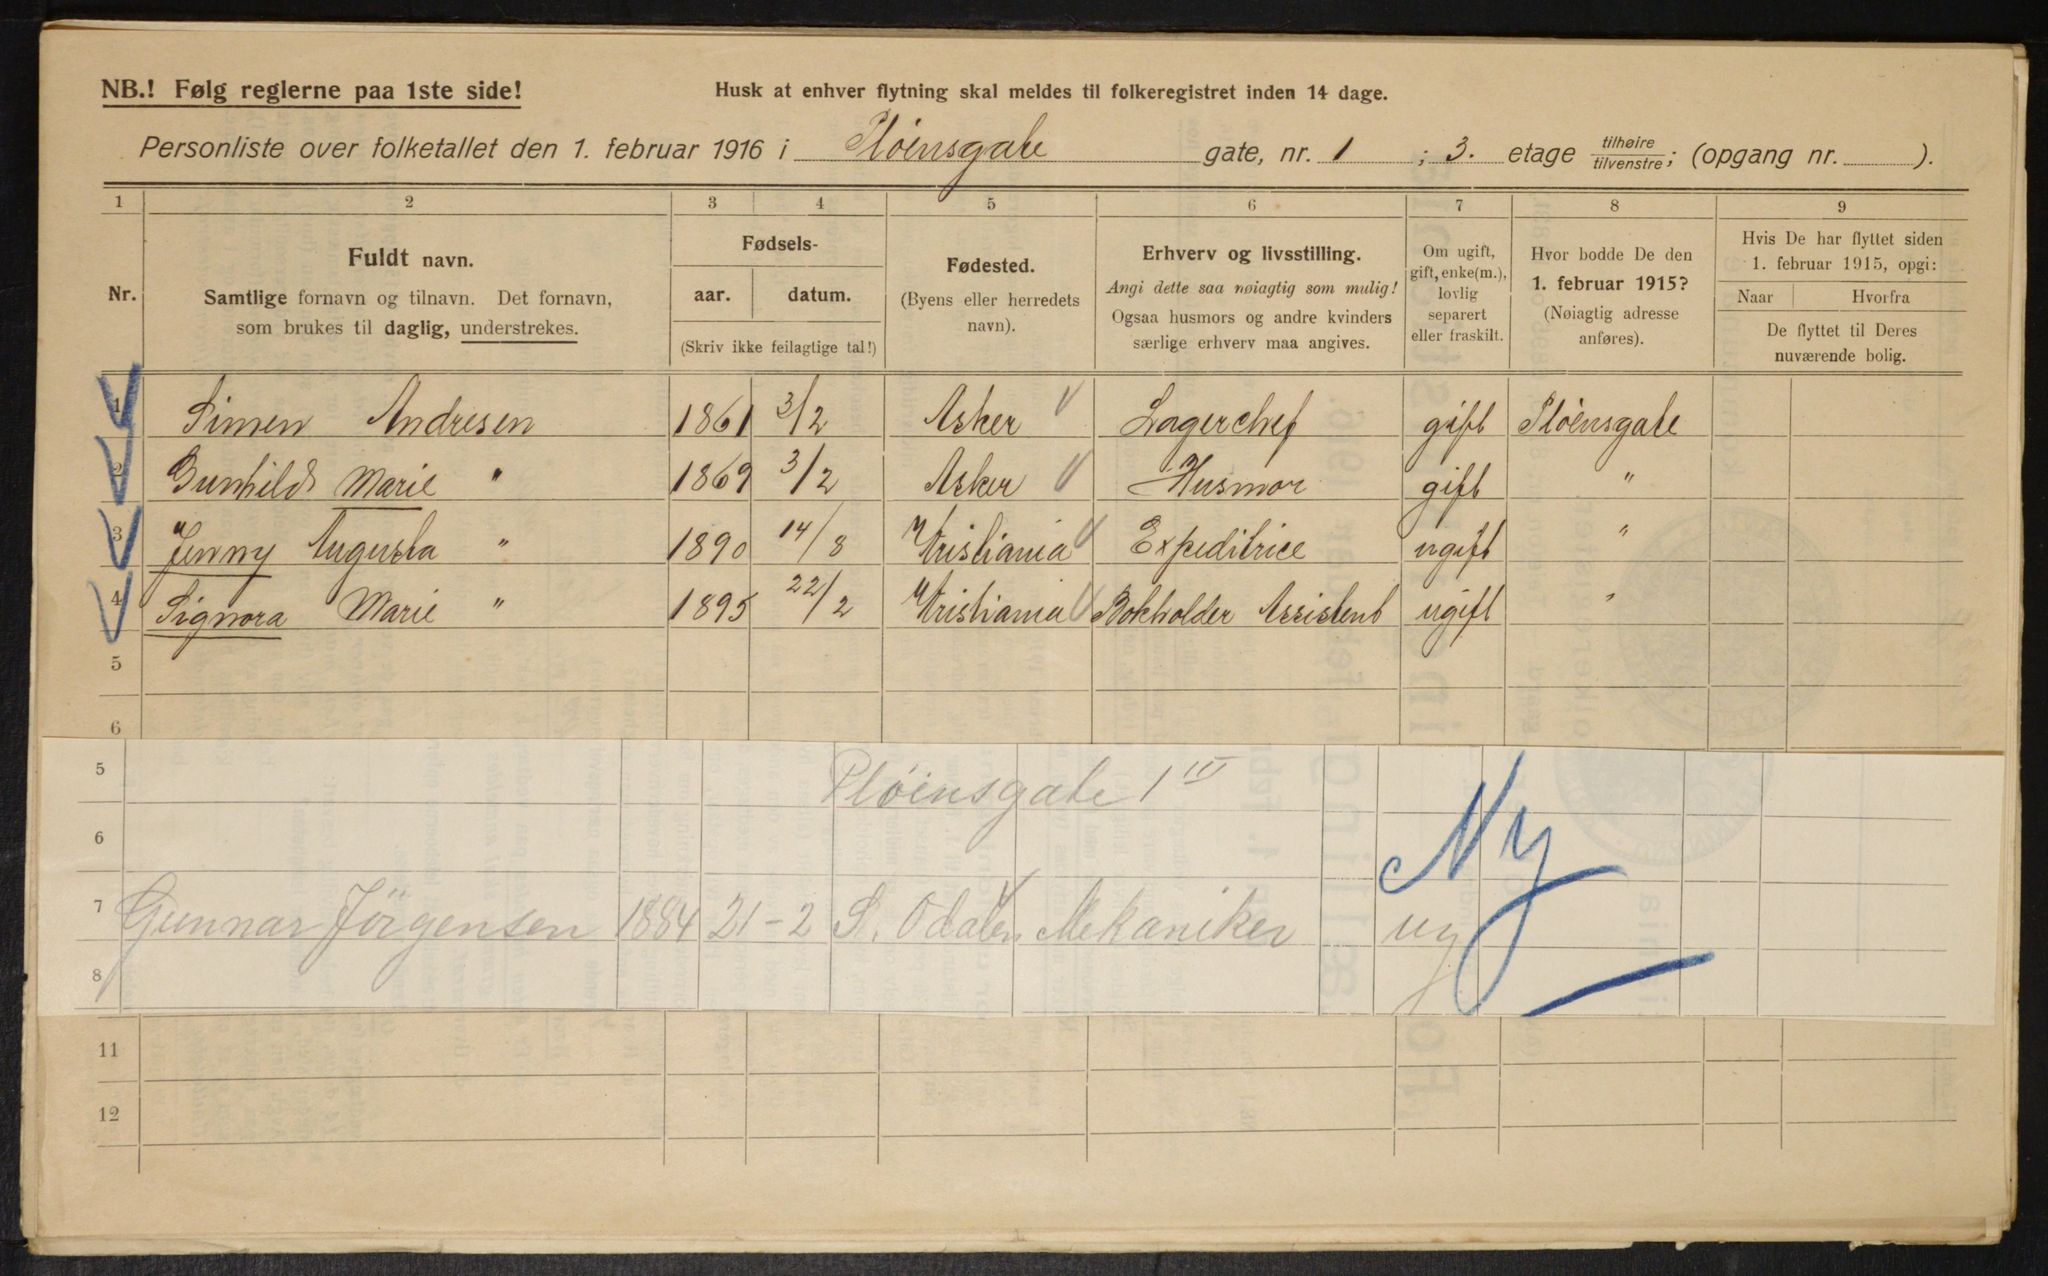 NB.! Følg reglerne paa 1ste side!
Husk at enhver flytning skal meldes til folkeregistret inden 14 dage.
Personliste over folketallet den 1. februar 1916 i Pløensgate gate, nr. 1 ; 3. etage tilhøire/tilvenstre; (opgang nr. ).
1 2 3 4 5 6 7 8 9
Nr.
Fuldt navn.
Samtlige fornavn og tilnavn. Det fornavn,
som brukes til daglig, understrekes.
Fødsels-
aar. datum.
(Skriv ikke feilagtige tal!)
Fødested.
(Byens eller herredets
navn).
Erhverv og livsstilling.
Angi dette saa nøiagtig som mulig!
Ogsaa husmors og andre kvinders
særlige erhverv maa angives.
Om ugift,
gift, enke(m.),
lovlig
separert
eller fraskilt.
Hvor bodde De den
1. februar 1915?
(Nøiagtig adresse
anføres).
Hvis De har flyttet siden
1. februar 1915, opgi:
Naar Hvorfra
De flyttet til Deres
nuværende bolig.
1 Simen Andresen 1861 3/2 Asker Lagerchef gift Pløensgate
2 Gunhild Marie " 1869 3/2 Asker Husmor gift "
3 Jenny Augusta " 1890 14/8 Kristiania Expeditrice ugift "
4 Signora Marie " 1895 22/2 Kristiania Bokholder Assistent ugift "
5
6
5 Pløensgate 1 III
6 Ny
7 Gunnar Jörgensen 1884 21-2 S. Odalen Mekaniker ug
8
11
12